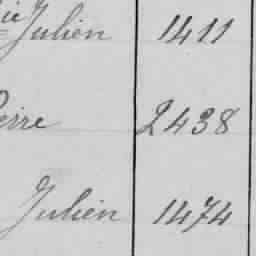 Julien 1411
2438
Julien 1474